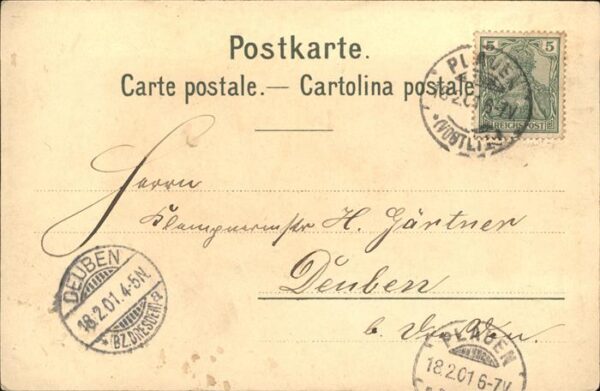 Postkarte.
Carte postale.— Cartolina postale
5 5
REICHSPOST
PLAUEN
18.2.01 6-7V.
*(VOGTL.)
Herrn
Klempnermstr H. Gärtner
Deuben
b. Dresden.
DEUBEN
18.2.01.4-5N.
*(BZ.DRESDEN) a
PLAUEN
18.2.01 6-7V